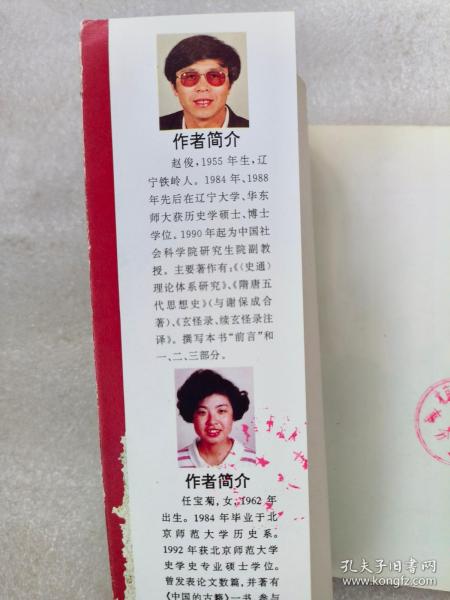 作者简介
赵俊，1955年生，辽
宁铁岭人。1984年、1988
年先后在辽宁大学、华东
师大获历史学硕士、博士
学位。1990年起为中国社
会科学院研究生院副教
授。主要著作有：《〈史通〉
理论体系研究》、《隋唐五
代思想史》（与谢保成合
著）、《玄怪录、续玄怪录注
译》。撰写本书“前言”和
一、二、三部分。
作者简介
任宝菊，女，1962年
出生。1984年毕业于北
京师范大学历史系。
1992年获北京师范大学
史学史专业硕士学位。
曾发表论文数篇，并著有
《中国的古籍》一书。参与
孔夫子旧书网
www.kongfz.com